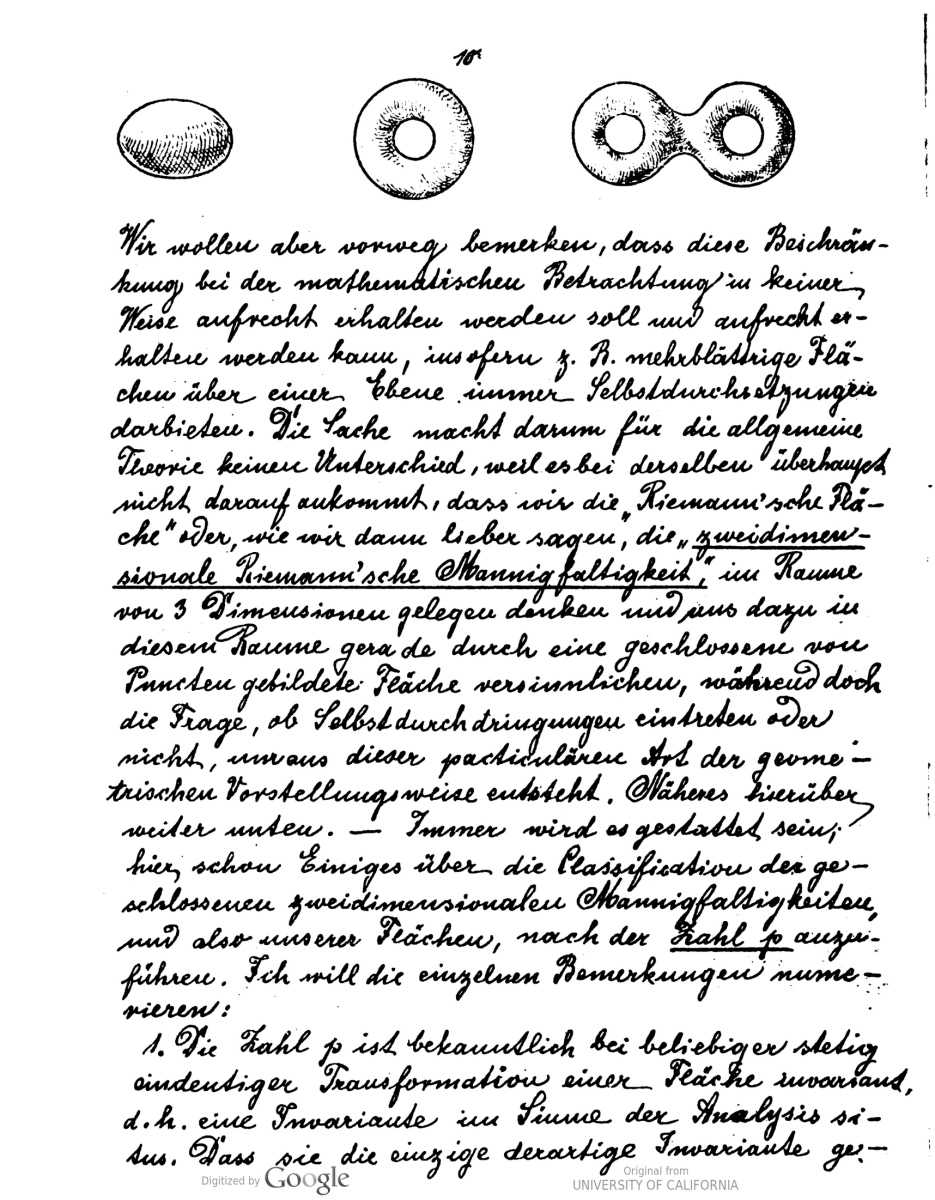 10.
Wir wollen aber vorweg bemerken, dass diese Beschrän-
kung bei der mathematischen Betrachtung in keiner
Weise aufrecht erhalten werden soll und aufrecht er-
halten werden kann, insofern z. B. mehrblättrige Flä-
chen über einer Ebene immer Selbstdurchsetzungen
darbieten. Die Sache macht darum für die allgemeine
Theorie keinen Unterschied, weil es bei derselben überhaupt
nicht darauf ankommt, dass wir die „Riemann'sche Flä-
che" oder, wie wir dann lieber sagen, die „zweidimen-
sionale Riemann'sche Mannigfaltigkeit", im Raume
von 3 Dimensionen gelegen denken und uns dazu in
diesem Raume gerade durch eine geschlossene von
Puncten gebildete Fläche versinnlichen, während doch
die Frage, ob Selbstdurchdringungen eintreten oder
nicht, nur aus dieser particulären Art der geome-
trischen Vorstellungsweise entsteht. Näheres hierüber
weiter unten. — Immer wird es gestattet sein,
hier schon Einiges über die Classification der ge-
schlossenen zweidimensionalen Mannigfaltigkeiten,
und also unserer Flächen, nach der Zahl p anzu-
führen. Ich will die einzelnen Bemerkungen nume-
rieren:
1. Die Zahl p ist bekanntlich bei beliebiger stetig
eindeutiger Transformation einer Fläche invariant,
d. h. eine Invariante im Sinne der Analysis si-
tus. Dass sie die einzige derartige Invariante ge-
Digitized by Google
Original from
UNIVERSITY OF CALIFORNIA